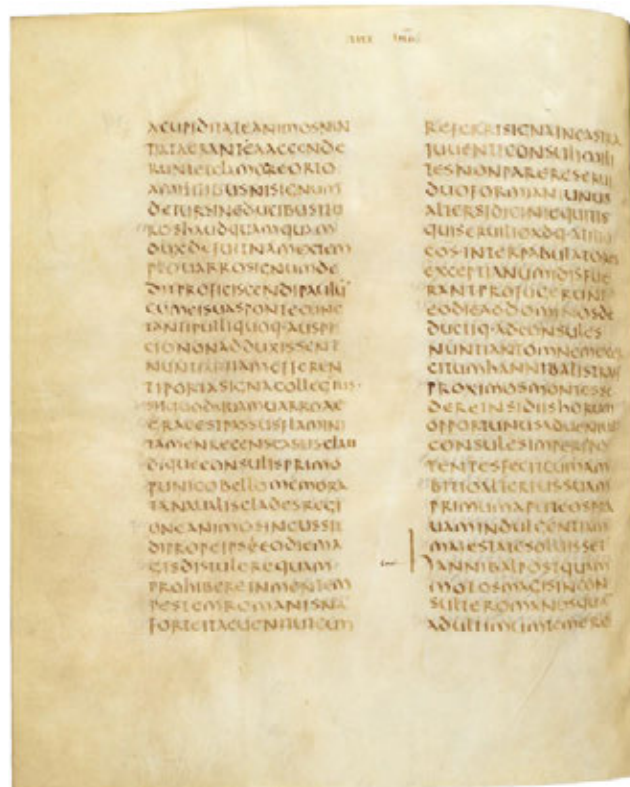 ACUPIDITATEANIMOSNUN
TIATAERANTEAACCENDE
RUNTETCLAMOREORTO
AMILITIBUSNISIGNUM
DETURSINEDUCIBUSITU
ROSHAUDQUAMQUAM
DUXDEFUITNAMEXTEM
PLOUARROSIGNUMDE
DITPROFICISCENDIPAULU
CUMEISUASPONTECUNC
TANTIPULLIQUOQ·AUSPI
CIONONADDUXISSENT
NUNTIARIIAMEFFEREN
TIPORTASIGNACOLLEGIUS
ERAEGESTPASSUSFLAMINI
TAMENRECENSCASUSCLAU
DIQUECONSULISPRIMO
PUNICOBELLOMEMORA
TANAUALISCLADESRELI
ONEANIMOSINCUSSIT
DIPROPEIPSEEODIEMA
GISDISTULEREQUAM
PROHIBEREINMENTEM
PESTEMROMANISNA
FORTEITAEUENITUTCUM
REFERRISIGNAINCASTRA
IUUENTICONSULIMILI
TESNONPARERESERUI
DUOFORMIANIUNUS
ALTERSIDICINIEQUITIS
QUISERUILIOADQ·ATILIO
COS·INTERPABULATORES
EXCEPTIANUMIDISFUE
RANTPROFUGERUNT
EODIEADDOMINOSDE
DUCTIQ·ADCONSULES
NUNTIANTOMNEMEXER
CITUMHANNIBALISTRANS
PROXIMOSMONTESSE
DEREINSIDIISHORUM
OPPORTUNUSADUENTUS
CONSULESIMPERIPO
TENTESFECITCUMAM
BITIOALTERIUSSUAM
PRIMUMAPUTEOSPRA
UAMINDULGENTIAM
MAIESTATESOLUISSET
HANNIBALPOSTQUAM
MOTOSMAGISINCON
SULTEROMANOSQUA
ADULTIMUMTEMERE